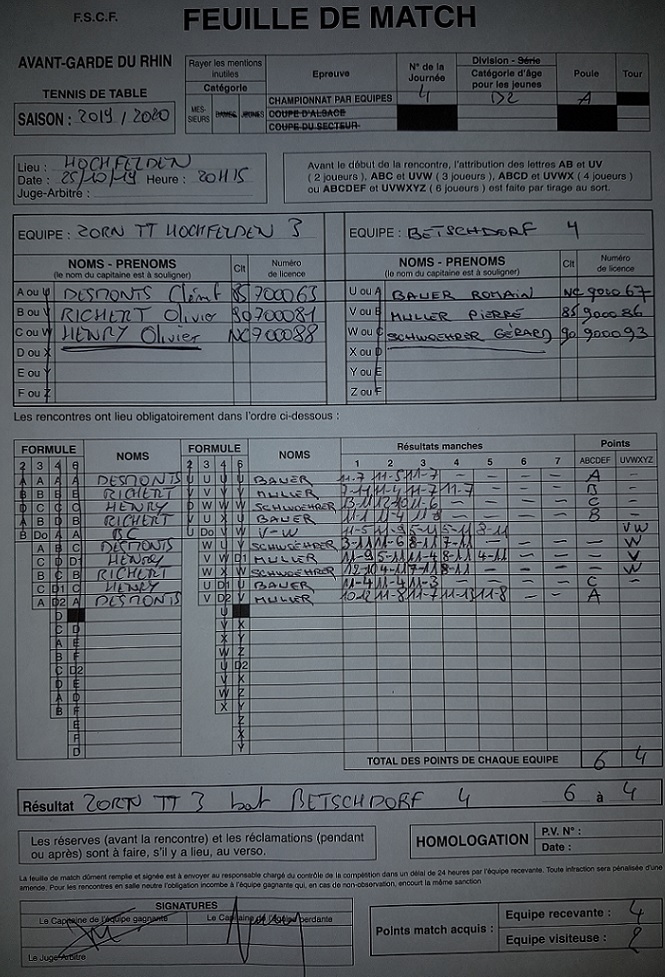 F.S.C.F.
FEUILLE DE MATCH
AVANT-GARDE DU RHIN
TENNIS DE TABLE
SAISON : 2019 / 2020
Rayer les mentions inutiles
Catégorie
MES-SIEURS DAMES JEUNES
Epreuve
CHAMPIONNAT PAR EQUIPES
COUPE D'ALSACE
COUPE DU SECTEUR
N° de la Journée
4
Division - Série
Catégorie d'âge pour les jeunes
D2
Poule
A
Tour
Lieu : HOCHFELDEN
Date : 25/10/19 Heure : 20H15
Juge-Arbitre :
Avant le début de la rencontre, l'attribution des lettres AB et UV
( 2 joueurs ), ABC et UVW ( 3 joueurs ), ABCD et UVWX ( 4 joueurs )
ou ABCDEF et UVWXYZ ( 6 joueurs ) est faite par tirage au sort.
EQUIPE : ZORN TT HOCHFELDEN 3
NOMS - PRENOMS Clt Numéro de licence
(le nom du capitaine est à souligner)
A ou U DESMONTS Clémt 85 700063
B ou V RICHERT Olivier 80 700081
C ou W HENRY Olivier NC 700088
D ou X
E ou Y
F ou Z
EQUIPE : BETSCHDORF 4
NOMS - PRENOMS Clt Numéro de licence
(le nom du capitaine est à souligner)
U ou A BAUER ROMAIN NC 900067
V ou B MULLER PIERRE 85 900086
W ou C SCHWOEHRER GÉRARD 90 900093
X ou D
Y ou E
Z ou F
Les rencontres ont lieu obligatoirement dans l'ordre ci-dessous :
FORMULE NOMS FORMULE NOMS Résultats manches Points
2 3 4 6 2 3 4 6 1 2 3 4 5 6 7 ABCDEF UVWXYZ
DESMONTS BAUER 11-7 11-5 11-7 - - - - A -
RICHERT MULLER 7-11 11-4 11-7 11-7 - - - B -
HENRY SCHWOEHRER 13-11 12-10 11-6 - - - - C -
RICHERT BAUER 11-1 11-4 - - - - B -
BC V-W 11-5 11-9 5-11 5-11 8-11 - - VW
DESMONTS SCHWOEHRER 3-11 11-6 8-11 7-11 - - - - W
HENRY MULLER 11-9 5-11 11-4 8-11 4-11 - - - V
RICHERT SCHWOEHRER 12-10 4-11 7-11 8-11 - - - - W
HENRY BAUER 11-4 11-4 11-3 - - - - C -
DESMONTS MULLER 10-12 11-8 11-7 11-13 11-8 - - A
TOTAL DES POINTS DE CHAQUE EQUIPE 6 4
Résultat ZORN TT 3 bat BETSCHDORF 4 6 à 4
Les réserves (avant la rencontre) et les réclamations (pendant
ou après) sont à faire, s'il y a lieu, au verso.
HOMOLOGATION
P.V. N° :
Date :
La feuille de match dûment remplie et signée est à envoyer au responsable chargé du contrôle de la compétition dans un délai de 24 heures par l'équipe recevante. Toute infraction sera pénalisée d'une
amende. Pour les rencontres en salle neutre l'obligation incombe à l'équipe gagnante qui, en cas de non-observation, encourt la même sanction
SIGNATURES
Le Capitaine de l'équipe gagnante Le Capitaine de l'équipe perdante
Le Juge-Arbitre
Points match acquis :
Equipe recevante : 4
Equipe visiteuse : 2